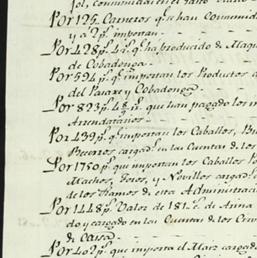 Por 125. Carneros que han Consumido
y a 2 p.s importan
Por 428 p.s 4 r.s q.e ha producido de Maqui
de Cobadonga
Por 594 p.s q.e importan los Productos
del Parage y Cobadonga
Por 823 p.s 4 r.s que han pagado los
Arrendatarios
Por 439 p.s q.e importan los Caballos,
Becerros cargad.s en las Cuentas de los
Por 1750 p.s que importan los Caballos
Machos, Toros, y Novillos cargad
de los Ramos de esta Administraci
Por 1448 p.s Valor de 181 c.s de Arina
do y cargado en las Cuentas de los
de Caisa
Por 402 p.s que importa el Maiz cargad